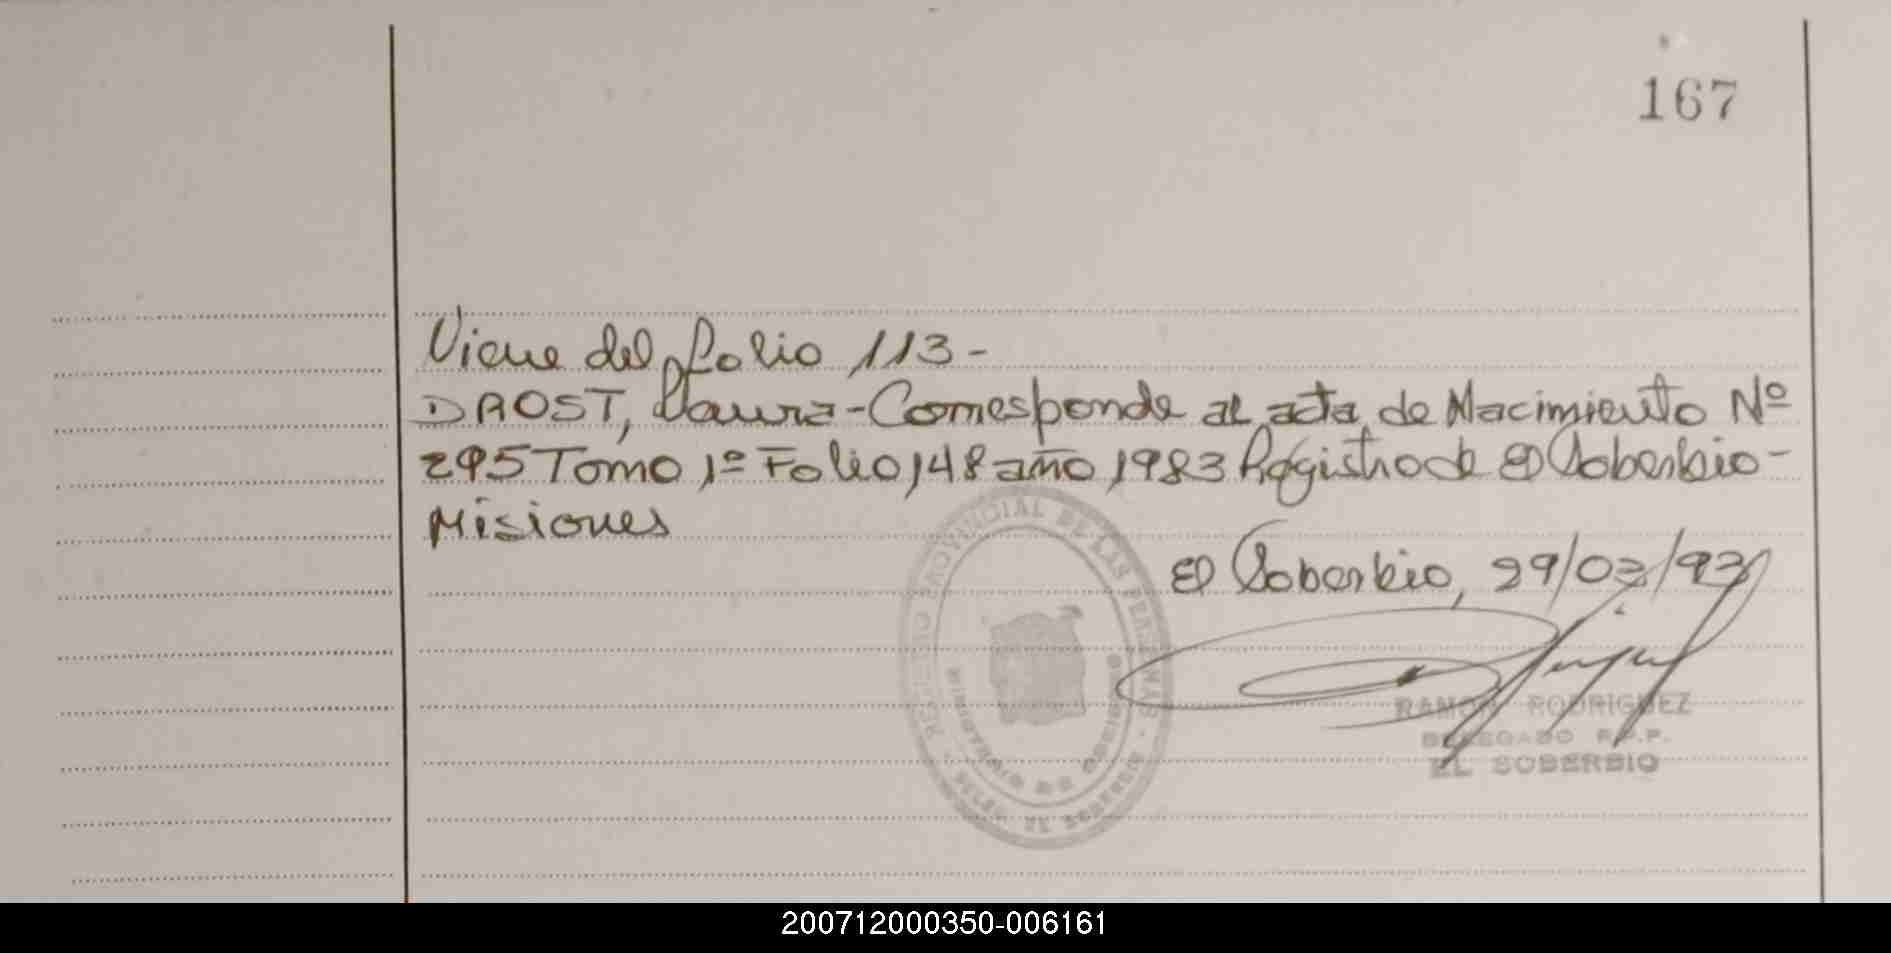 167
Viene del folio 113-
DROST, Laura - Corresponde al acta de Nacimiento Nº
295 Tomo 1º Folio 148 año 1983 Registro de El Soberbio-
Misiones
El Soberbio, 29/02/92
REGISTRO PROVINCIAL DE LAS PERSONAS
MINISTERIO DE GOBIERNO
DELEG. EL SOBERBIO
RAMON RODRIGUEZ
DELEGADO R.P.P.
EL SOBERBIO
200712000350-006161